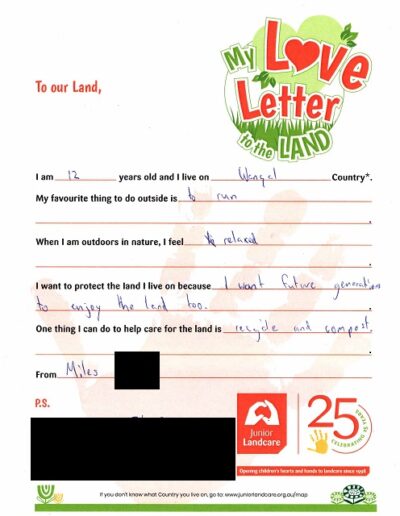 My Love
Letter
to the LAND
To our Land,
I am 12 years old and I live on Wangal Country*.
My favourite thing to do outside is to run
.
When I am outdoors in nature, I feel relaxed
.
I want to protect the land I live on because I want future generations
to enjoy the land too.
One thing I can do to help care for the land is recycle and compost.
.
From Miles
P.S.
Junior
Landcare
25 YEARS
CELEBRATING
Opening children's hearts and hands to landcare since 1998
If you don't know what Country you live on, go to: www.juniorlandcare.org.au/map